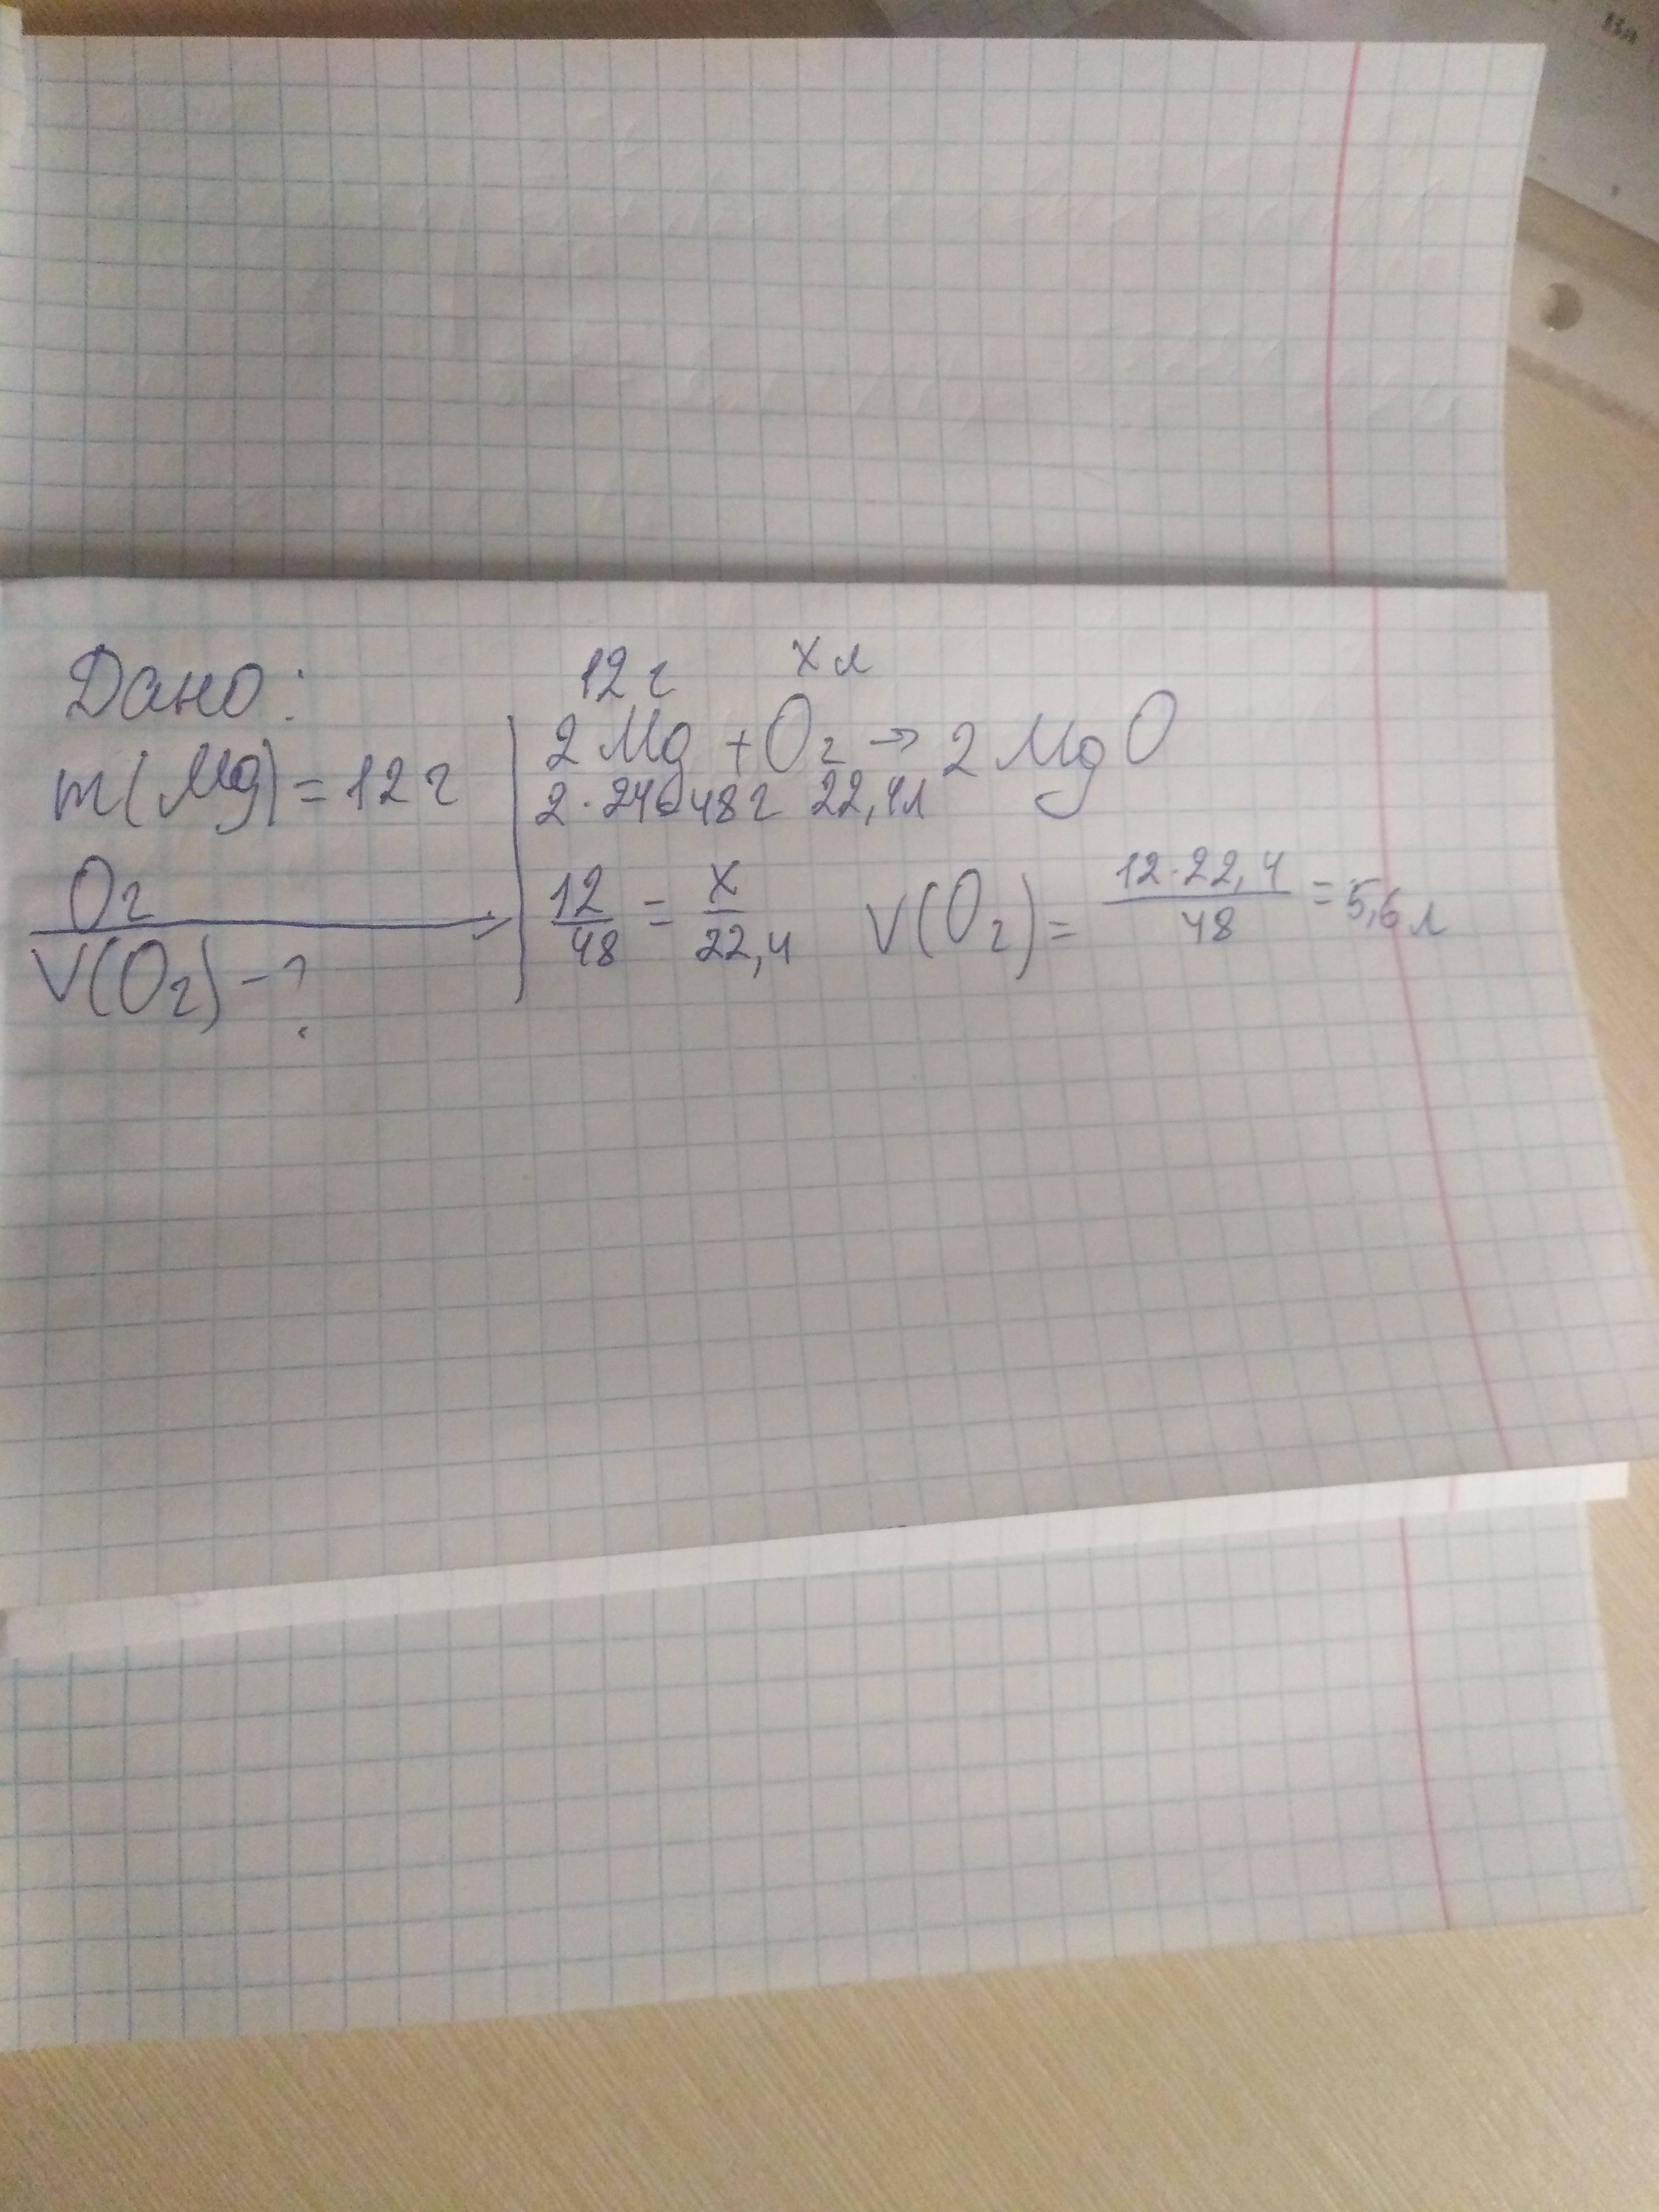 Дано:
m(Mg) = 12 г
O₂
V(O₂) - ?
12 г x л
2 Mg + O₂ → 2 MgO
2·24=48 г 22,4 л
12/48 = x/22,4 V(O₂) = 12·22,4/48 = 5,6 л